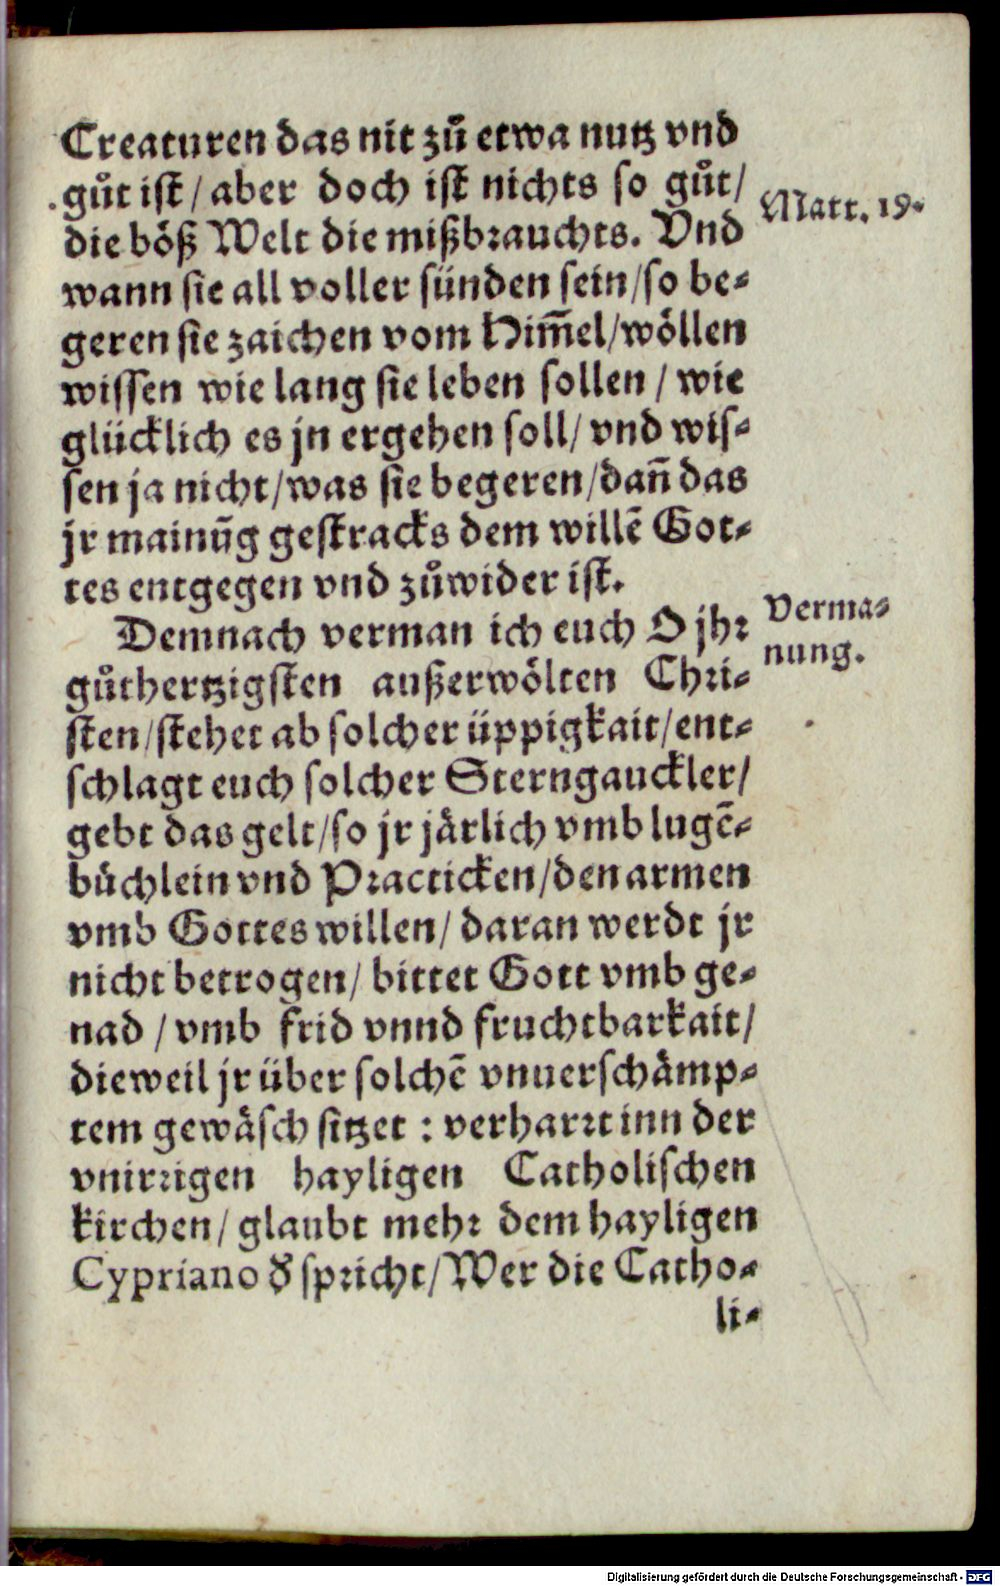 Creaturen das nit zů etwa nutz vnd
gůt ist / aber doch ist nichts so gůt /
die böß Welt die mißbrauchts. Vnd
wann sie all voller sünden sein / so be-
geren sie zaichen vom Him̃el / wöllen
wissen wie lang sie leben sollen / wie
glücklich es jn ergehen soll / vnd wis-
sen ja nicht / was sie begeren / dañ das
jr mainũg gestracks dem willẽ Got-
tes entgegen vnd zůwider ist.
Matt. 19.
Demnach verman ich euch O jhr
gůthertzigsten außerwölten Chri-
sten / stehet ab solcher üppigkait / ent-
schlagt euch solcher Sterngauckler /
gebt das gelt / so jr järlich vmb lugẽ-
büchlein vnd Practicken / den armen
vmb Gottes willen / daran werdt jr
nicht betrogen / bittet Gott vmb ge-
nad / vmb frid vnnd fruchtbarkait /
dieweil jr über solchẽ vnuerschämp-
tem gewäsch sitzet : verharrt inn der
vnirrigen hayligen Catholischen
kirchen / glaubt mehr dem hayligen
Cypriano ď spricht / Wer die Catho-
li-
Verma-
nung.
Digitalisierung gefördert durch die Deutsche Forschungsgemeinschaft - DFG